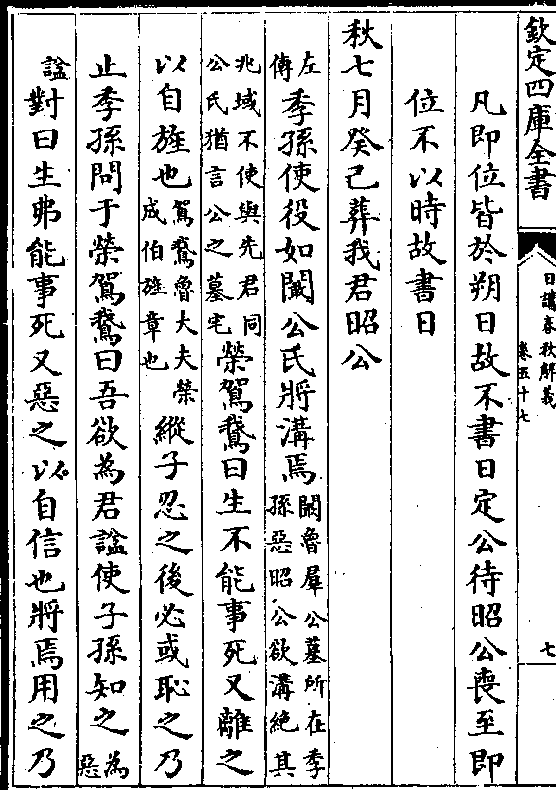 欽定四庫全書
日講春秋解義
卷五十七
七
凡即位皆於朔日故不書日定公待昭公喪至即
位不以時故書日
秋七月癸巳葬我君昭公
左傳
季孫使役如闞公氏將溝焉
闞魯羣公墓所在季
孫惡昭公欲溝絶其
兆域不使與先君同
公氏猶言公之墓宅
榮駕鵞曰生不能事死又離之
以自旌也
駕鵞魯大夫榮
成伯旌章也
縱子忍之後必或恥之乃
止季孫問于榮駕鵞曰吾欲為君諡使子孫知之
為
惡
諡
對曰生弗能事死又惡之以自信也將焉用之乃